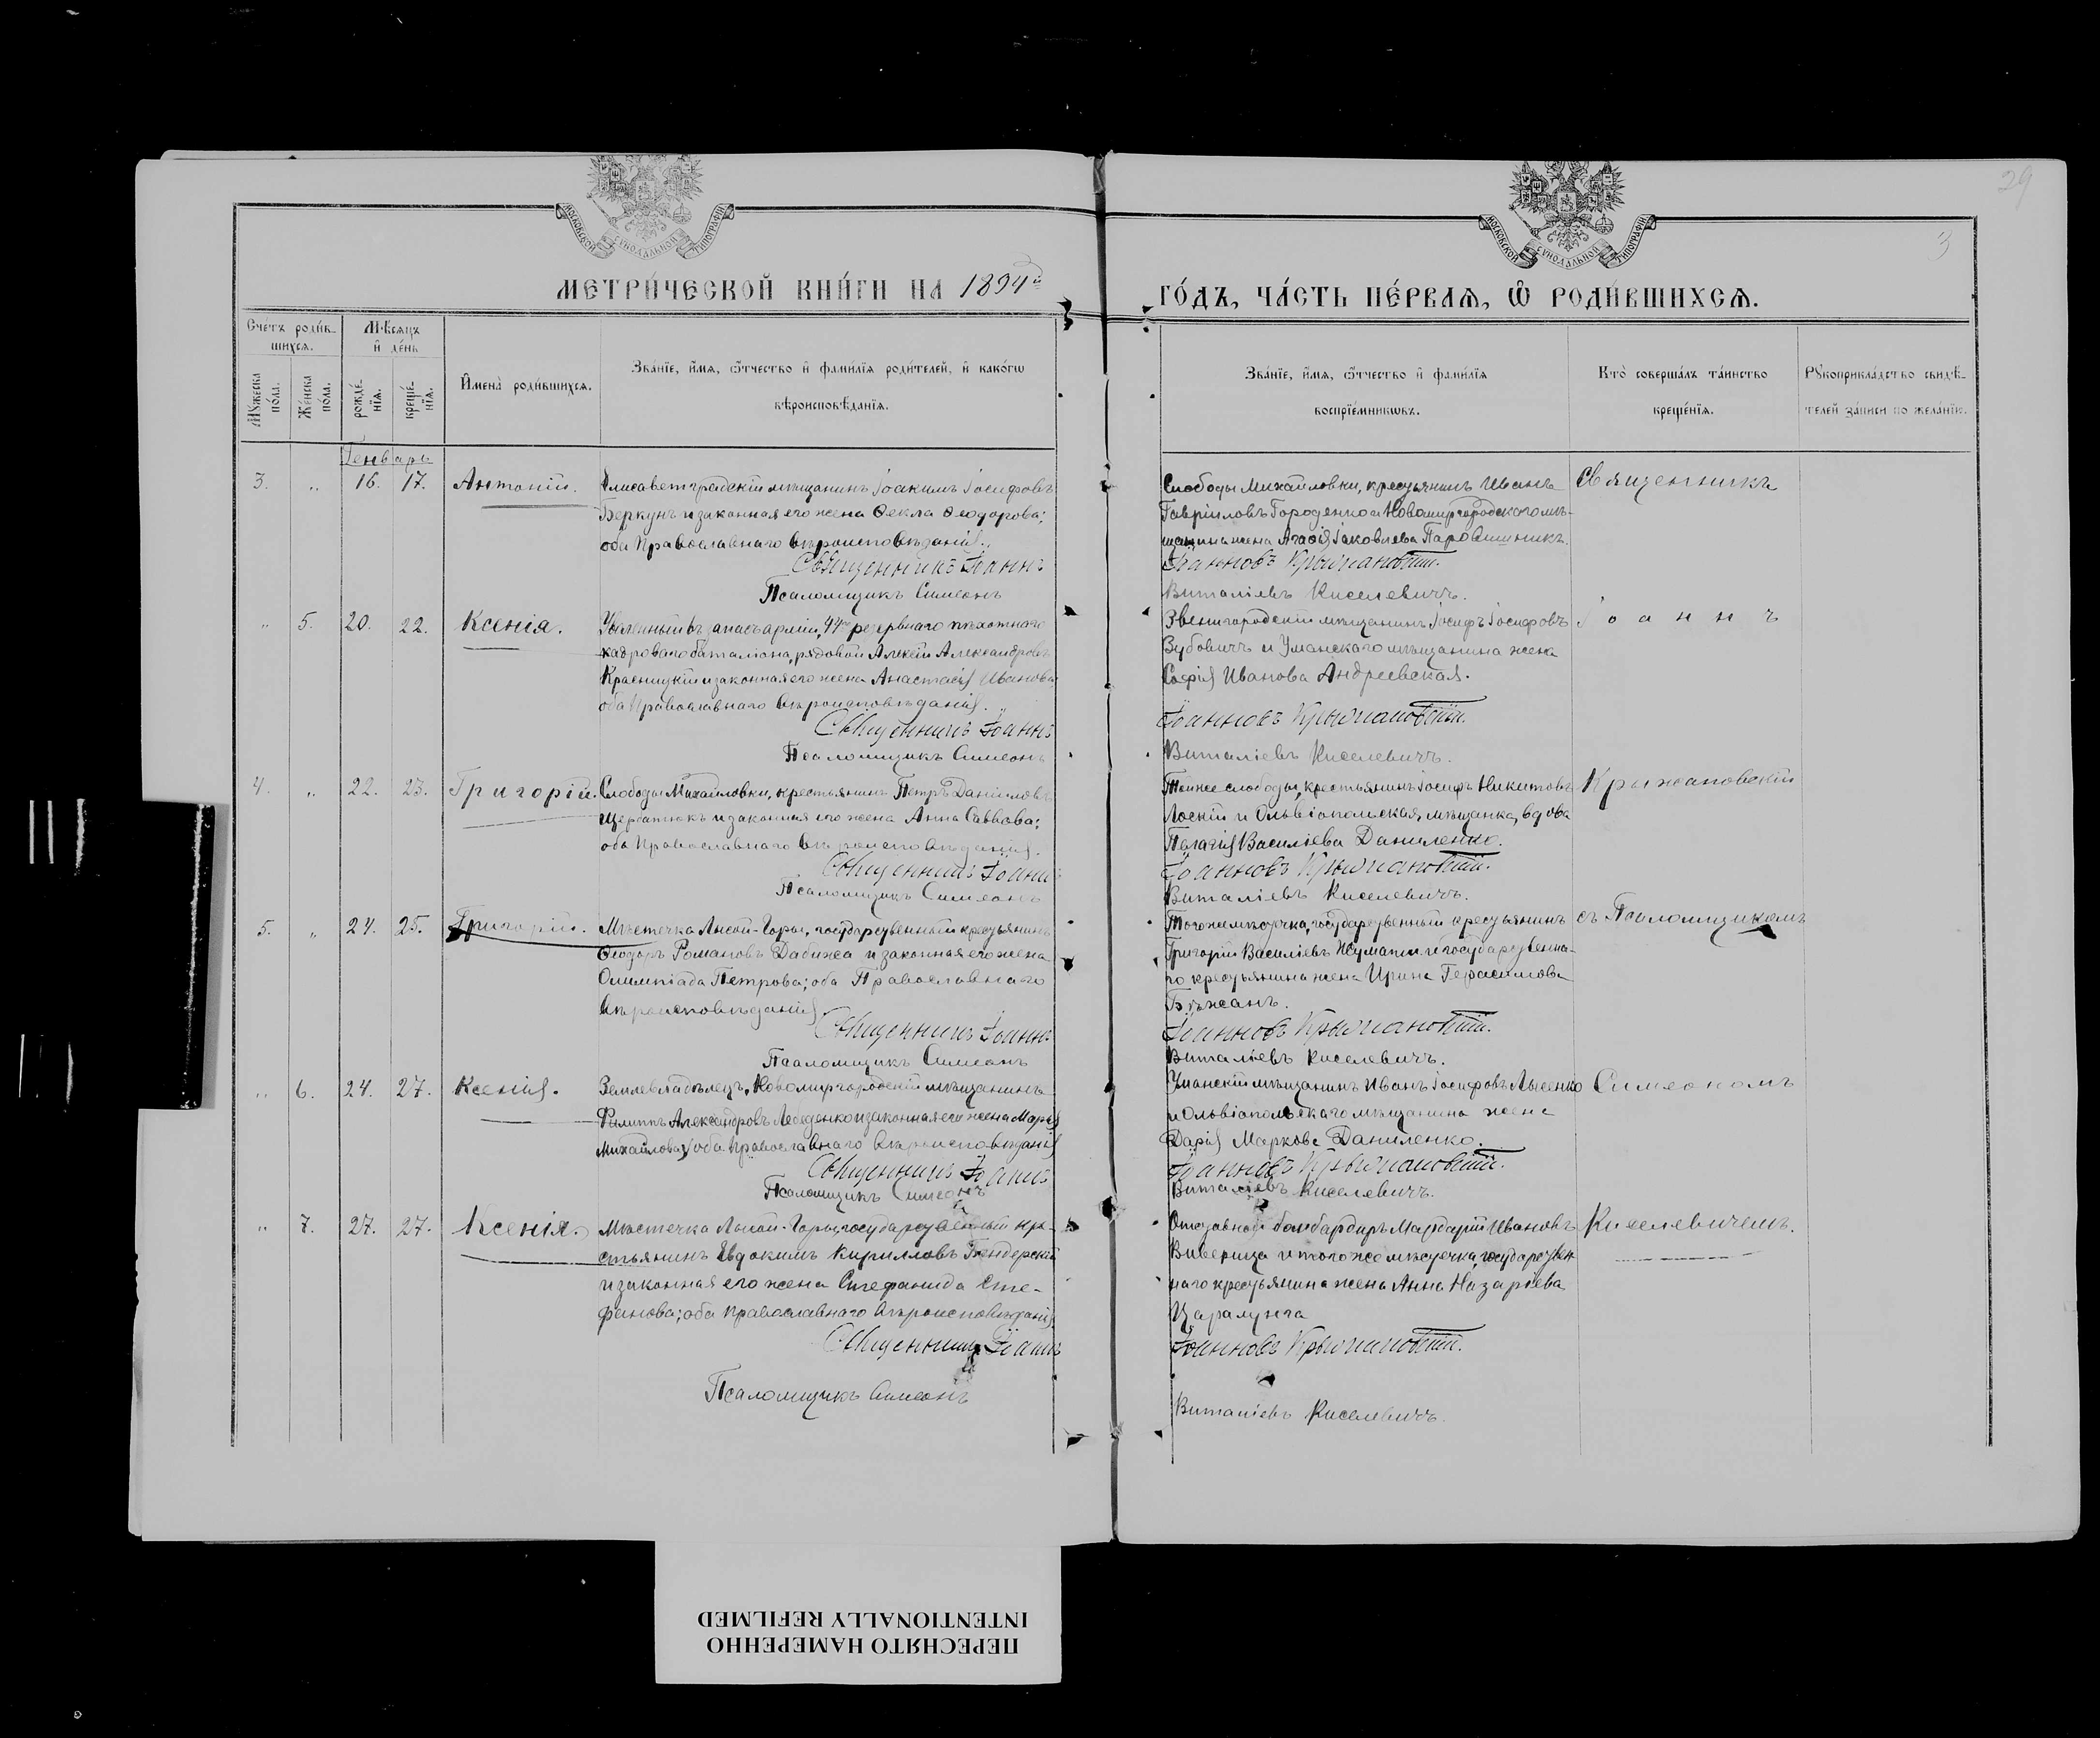 29
3
МОСКОВСКОЙ СѴНОДАЛЬНОЙ ТИПОГРАФІИ
МОСКОВСКОЙ СѴНОДАЛЬНОЙ ТИПОГРАФІИ
МЕТРИ́ЧЕСКОЙ КНИ́ГИ НА 1894й
ГО́ДЪ, ЧА́СТЬ ПЕ́РВАѦ, Ѿ РОДИ́ВШИХСѦ.
Сче́тъ роди́в-
шихсѧ.
Мѣсѧцъ
и҆ де́нь
Мꙋ́жеска по́ла.
Же́нска по́ла.
рожде́-нїѧ.
креще́-нїѧ.
И҆мена̀ роди́вшихсѧ.
Зва́нїе, и҆́мѧ, ѻ҆́тчество и҆ фами́лїѧ роди́телей, и҆ како́гѡ
вѣроисповѣ́данїѧ.
Зва́нїе, и҆́мѧ, ѻ҆́тчество и҆ фами́лїѧ
воспрїе́мникѡвъ.
Кто̀ соверша́лъ та́инство
креще́нїѧ.
Рꙋкоприкла́дство свидѣ́-
телей за́писи по жела́нїю.
Генварь
3. „ 16. 17. Антоній.
Елисаветградскій мѣщанинъ Іоакимъ Іосифовъ
Беркунъ и законная его жена Ѳекла Ѳеодорова;
оба Православнаго вѣроисповѣданія.
Священникъ Іоаннъ
Псаломщикъ Симеонъ
Слободы Михайловки, крестьянинъ Иванъ
Гавріиловъ Городенко и Новомиргородскаго мѣ-
щанина жена Агаѳія Іаковлева
Іоанновъ Крыжановскій.
Виталіевъ Киселевичъ.
Священникъ
„ 5. 20. 22. Ксенія.
Уволенный въ запасъ арміи, 44го резервнаго пѣхотнаго
кадроваго баталіона, рядовой Алексій Александровъ
Красицкій и законная его жена Анастасія Иванова
оба Православнаго вѣроисповѣданія.
Священникъ Іоаннъ
Псаломщикъ Симеонъ
Звенигородскій мѣщанинъ Іосифъ Іосифовъ
Зубовичъ и Уманскаго мѣщанина жена
Софія Иванова Андреевская.
Іоанновъ Крыжановскій.
Виталіевъ Киселевичъ.
Іоаннъ
4. „ 22. 23. Григорій.
Слободы Михайловки, крестьянинъ Петръ Даніиловъ
Щербатюкъ и законная его жена Анна Саввова;
оба Православнаго вѣроисповѣданія.
Священникъ Іоаннъ
Псаломщикъ Симеонъ
Той же слободы, крестьянинъ Іосифъ Никитовъ
Лоскій и Ольвіопольская, мѣщанка, вдова
Пелагія Василіева Даниленко.
Іоанновъ Крыжановскій.
Виталіевъ Киселевичъ.
Крыжановскій
5. „ 24. 25. Григорій.
Мѣстечка Лысой-Горы, государственный крестьянинъ
Ѳеодоръ Романовъ Дабижа и законная его жена
Олимпіада Петрова; оба Православнаго
вѣроисповѣданія
Священникъ Іоаннъ
Псаломщикъ Симеонъ
Того же мѣстечка, государственный крестьянинъ
Григорій Василіевъ и государственна-
го крестьянина жена Ирина Герасимова
Бѣжанъ.
Іоанновъ Крыжановскій.
Виталіевъ Киселевичъ.
съ Псаломщикомъ
„ 6. 24. 27. Ксенія.
Землевладѣлецъ, Новомиргородскій мѣщанинъ
Филиппъ Александровъ Лебеденко и законная его жена Марія
Михайлова; оба Православнаго вѣроисповѣданія
Священникъ Іоаннъ
Псаломщикъ Симеонъ
Уманскій мѣщанинъ Иванъ Іосифовъ Лысенко
и Ольвіопольскаго мѣщанина жена
Дарія Маркова Даниленко.
Іоанновъ Крыжановскій.
Виталіевъ Киселевичъ.
Симеономъ
„ 7. 27. 27. Ксенія.
Мѣстечка Лысой-Горы, государственный кре-
стьянинъ Евдокимъ Кирилловъ Бендерскій
и законная его жена Стефанида Сте-
фанова; оба православнаго вѣроисповѣданія
Священникъ Іоаннъ
Псаломщикъ Симеонъ
Отставной бомбардиръ Мардарій Ивановъ
Виверица и того же мѣстечка, государствен
наго крестьянина жена Анна Назаріева
Царалунга
Іоанновъ Крыжановскій.
Виталіевъ Киселевичъ.
Киселевичемъ.
ПЕРЕСНЯТО НАМЕРЕННО
INTENTIONALLY REFILMED